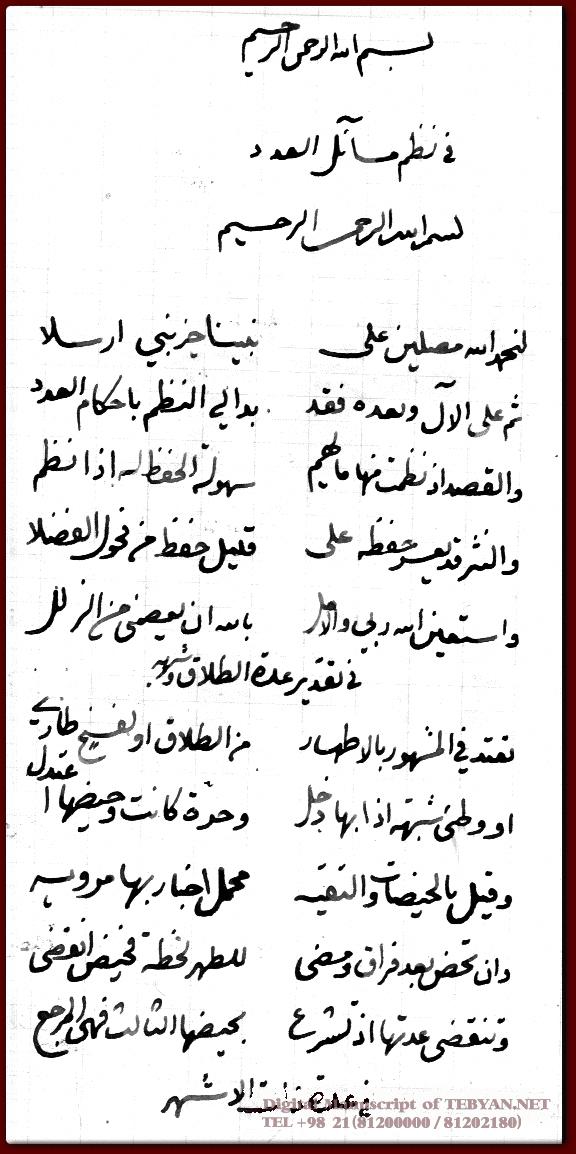 بسم الله الرحمن الرحيم
في نظم مسائل العدد
بسم الله الرحمن الرحيم
لنحمد الله مصلين على نبينا خير نبي ارسلا
ثم على الآل وبعده فقد بدا لي النظم باحكام العدد
والقصد اذ نظمت منها ما لهم سهولة الحفظ له اذا نظم
والنثر قد يعسر حفظه على قليل حفظ من فحول الفضلا
واستعين الله ربي والامل بالله ان يعصني من الزلل
في تقدير عدة الطلاق وشبهه
تعتد في المشهور بالاطهار من الطلاق او لفسخ طاري
او وطئ شبهة اذا بها دخل وحرة كانت وحيضها اعتدل
وقيل بالحيضات والتقيه محمل اخبار بها مرويه
وان تحض بعد فراق ومضى للطهر لحظة فحيض انقضى
وتنقضي عدتها اذ تشرع بحيضها الثالث فهي المرجع
في عدة ذات الاشهر
Digital Manuscript of TEBYAN.NET
TEL +98 21(81200000 / 81202180)